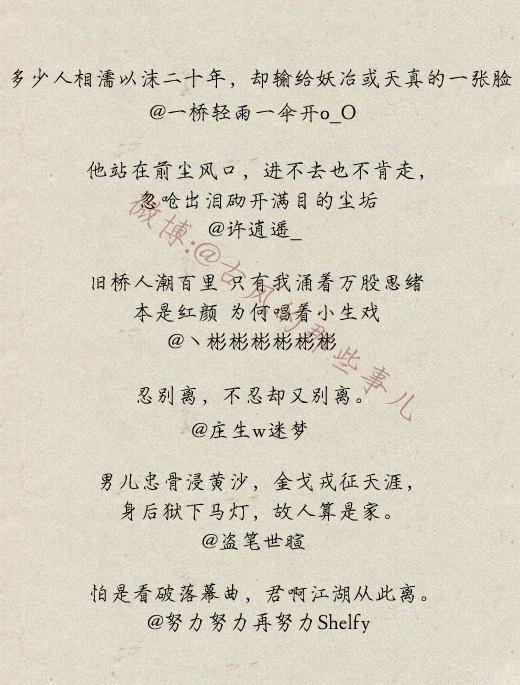 多少人相濡以沫二十年，却输给妖冶或天真的一张脸
@一桥轻雨一伞开o_O
他站在前尘风口，进不去也不肯走，
忽呛出泪砌开满目的尘垢
@许逍遥_
旧桥人潮百里 只有我涌着万股思绪
本是红颜 为何唱着小生戏
@丶彬彬彬彬彬彬
忍别离，不忍却又别离。
@庄生w迷梦
男儿忠骨浸黄沙，金戈戎征天涯，
身后狱下马灯，故人算是家。
@盗笔世暄
怕是看破落幕曲，君啊江湖从此离。
@努力努力再努力Shelfy
微博:@古风的那些事儿